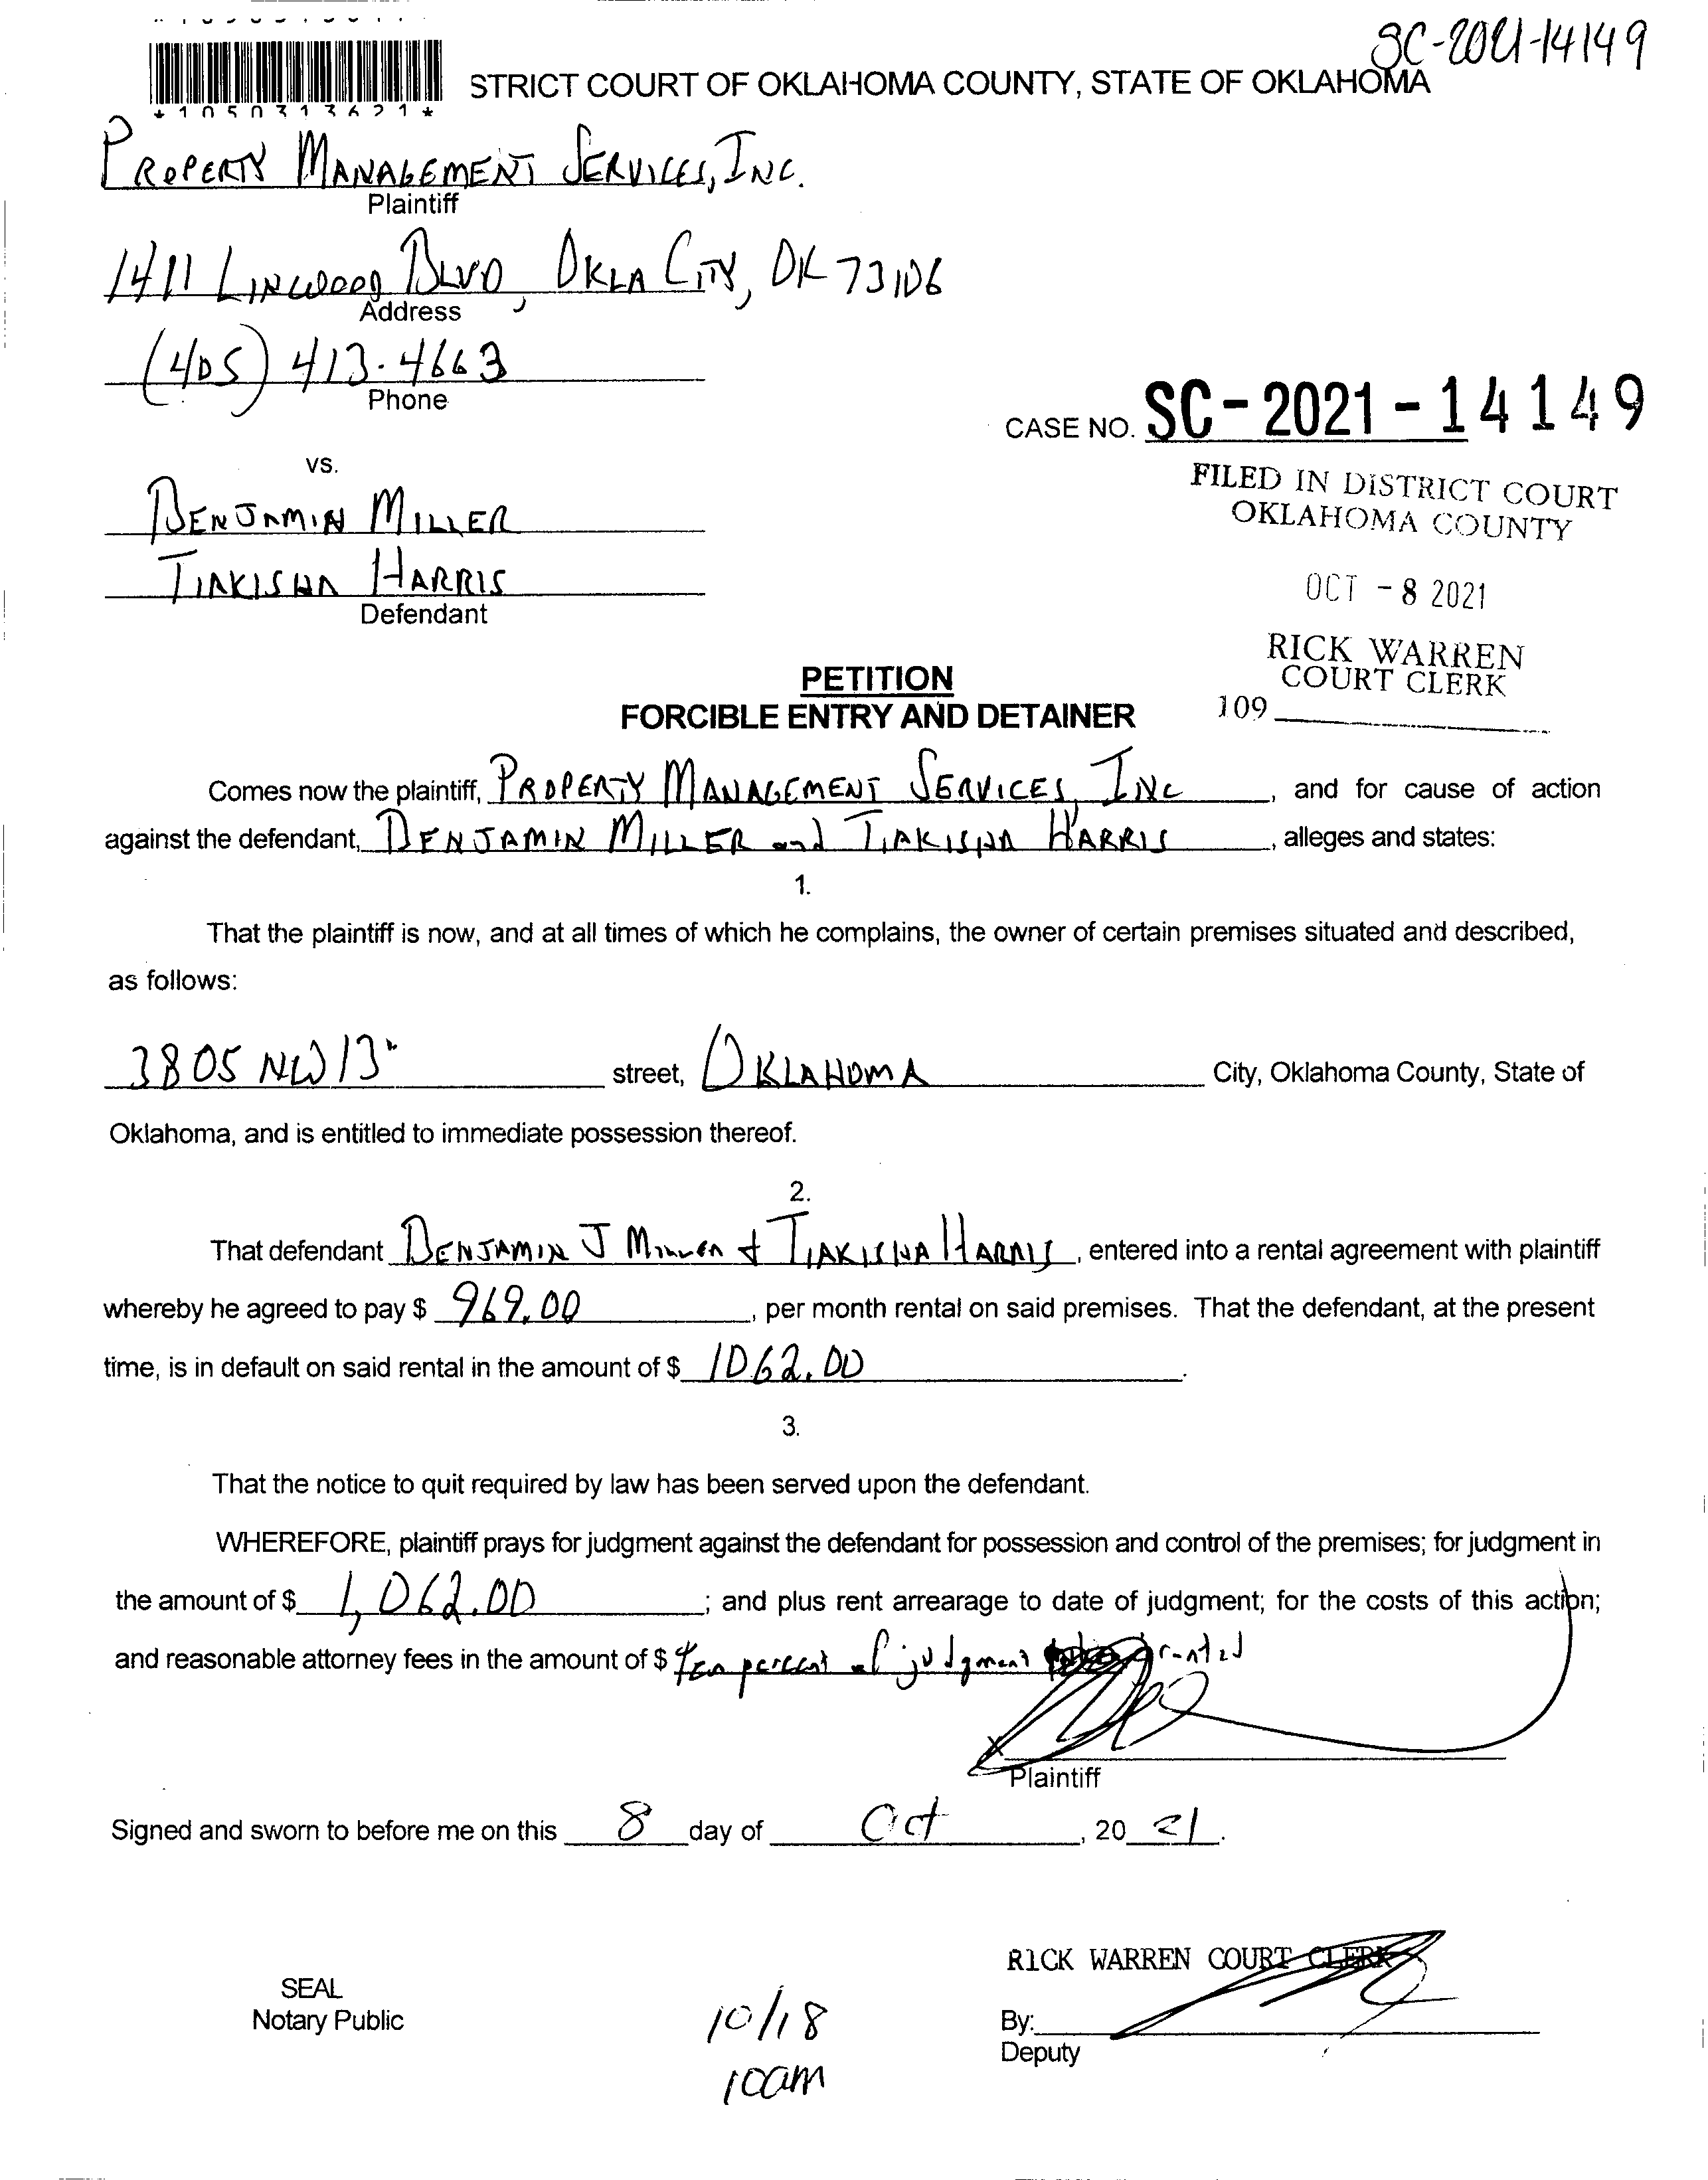 SC-2021-14149
STRICT COURT OF OKLAHOMA COUNTY, STATE OF OKLAHOMA
*1050313621*
PROPERTY MANAGEMENT SERVICES, INC.
Plaintiff
1411 LINWOOD BLVD, OKLA CITY, OK 73106
Address
(405) 413-4663
Phone
CASE NO. SC-2021-14149
vs.
FILED IN DISTRICT COURT
OKLAHOMA COUNTY
BENJAMIN MILLER
TIAKISHA HARRIS
Defendant
OCT -8 2021
RICK WARREN
COURT CLERK
109
PETITION
FORCIBLE ENTRY AND DETAINER
Comes now the plaintiff, PROPERTY MANAGEMENT SERVICES, INC, and for cause of action
against the defendant, BENJAMIN MILLER and TIAKISHA HARRIS, alleges and states:
1.
That the plaintiff is now, and at all times of which he complains, the owner of certain premises situated and described,
as follows:
3805 NW 13th street, OKLAHOMA City, Oklahoma County, State of
Oklahoma, and is entitled to immediate possession thereof.
2.
That defendant BENJAMIN J MILLER + TIAKISHA HARRIS, entered into a rental agreement with plaintiff
whereby he agreed to pay $ 969.00, per month rental on said premises. That the defendant, at the present
time, is in default on said rental in the amount of $ 1062.00.
3.
That the notice to quit required by law has been served upon the defendant.
WHEREFORE, plaintiff prays for judgment against the defendant for possession and control of the premises; for judgment in
the amount of $ 1,062.00; and plus rent arrearage to date of judgment; for the costs of this action;
and reasonable attorney fees in the amount of $ ten percent of judgment granted
X
Plaintiff
Signed and sworn to before me on this 8 day of Oct, 20 21.
RICK WARREN COURT CLERK
SEAL
Notary Public
10/18
10am
By:
Deputy